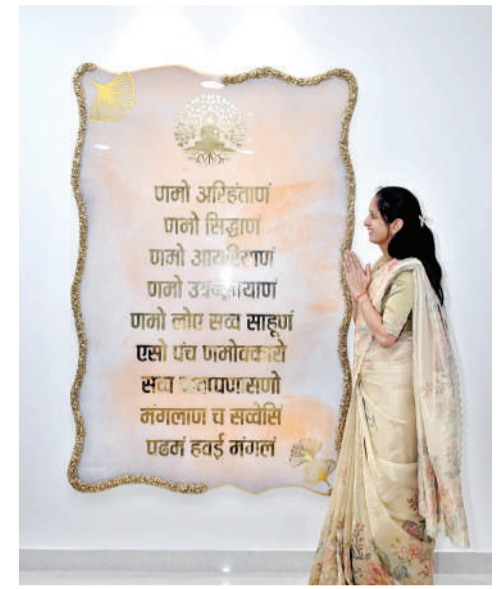 णमो अरिहंताणं
णमो सिद्धाणं
णमो आयरियाणं
णमो उवज्झायाणं
णमो लोए सव्व साहूणं
एसो पंच णमोक्कारो
सव्व
मंगलाण च सव्वेसिं
पढमं हवई मंगलं